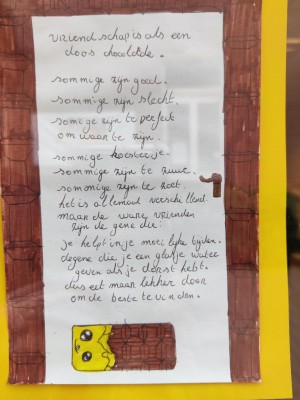 vriendschap is als een
doos chocolade.
sommige zijn goed.
sommige zijn slecht.
somige zijn te perfect
om waar te zijn.
sommige koester je.
sommige zijn te zuur.
sommige zijn te zoet.
het is allemaal verschillend.
maar de ware vrienden
zijn de gene die:
je helpt in je moeilijke tijden.
degene die je een glasje water
geven als je dorst hebt.
dus eet maar lekker door
om de beste te vinden.